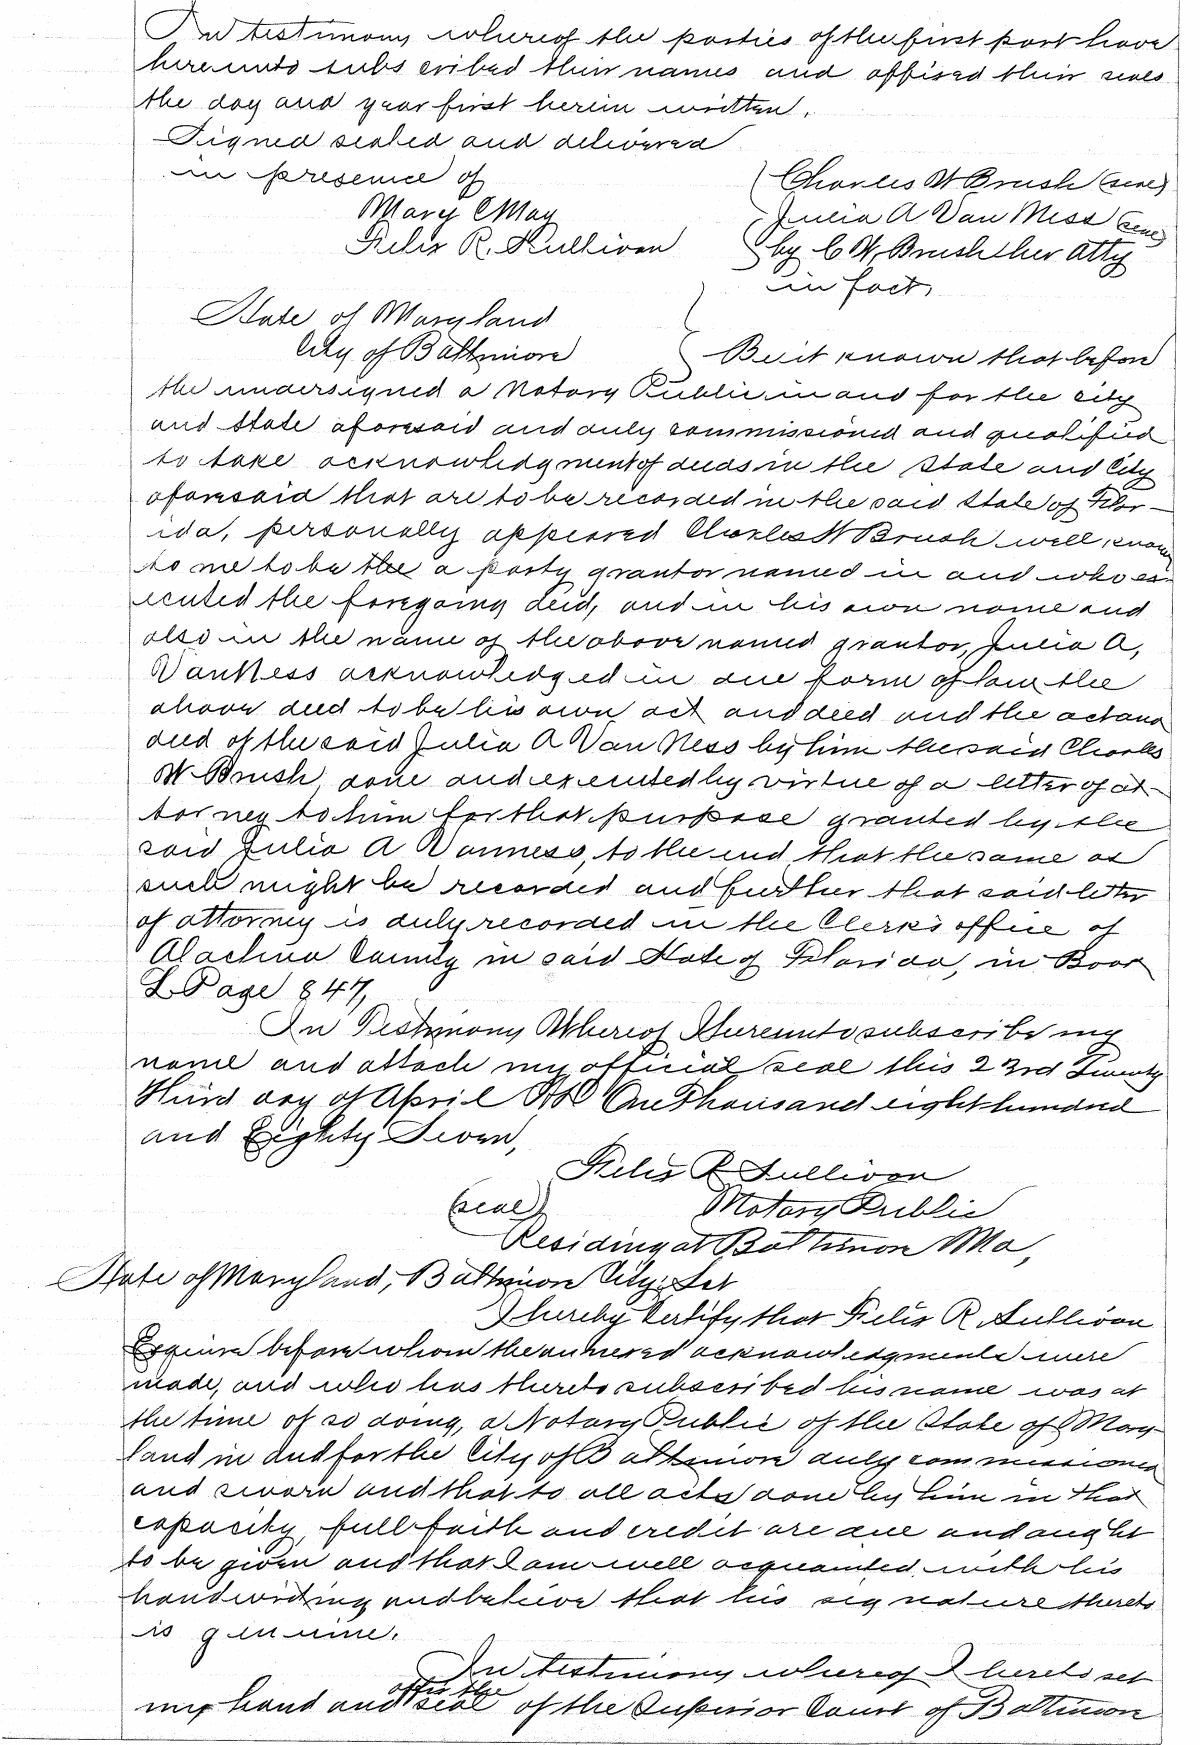 In testimony whereof the parties of the first part have
hereunto subscribed their names and affixed their seals
the day and year first herein written.
Signed sealed and delivered
in presence of
Charles W Brush (seal)
Mary C May
Julia A Van Ness (seal)
Felix R. Sullivan
by C W. Brush her Atty
in fact,
State of Maryland
City of Baltimore
Be it known that before
the undersigned a Notary Public in and for the city
and State aforesaid and duly commissioned and qualified
to take acknowledgment of deeds in the State and City
aforesaid that are to be recorded in the said State of Flor-
ida, personally appeared Charles W Brush well known
to me to be the a party grantor named in and who ex-
ecuted the foregoing deed, and in his own name and
also in the name of the above named grantor, Julia A,
Van Ness acknowledged in due form of law the
above deed to be his own act and deed and the act and
deed of the said Julia A Van Ness by him the said Charles
W Brush, done and executed by virtue of a letter of at-
torney to him for that purpose granted by the
said Julia A Vanness, to the end that the same as
such might be recorded and further that said letter
of attorney is duly recorded in the Clerk's office of
Alachua County in said State of Florida, in Book
L Page 847,
In Testimony Whereof I hereunto subscribe my
name and attach my official seal this 23rd Twenty
Third day of April AD One Thousand eight hundred
and Eighty Seven,
Felix R Sullivan
(seal) Notary Public
Residing at Baltimore Md,
State of Maryland, Baltimore City, Sct
I hereby Certify that Felix R. Sullivan
Esquire before whom the annexed acknowledgments were
made, and who has thereto subscribed his name was at
the time of so doing, a Notary Public of the State of Mary-
land in and for the City of Baltimore duly commissioned
and sworn and that to all acts done by him in that
capacity, full faith and credit are due and aught
to be given and that I am well acquainted with his
handwriting and believe that his signature thereto
is genuine.
In testimony whereof I hereto set
my hand and affix the seal of the Superior Court of Baltimore